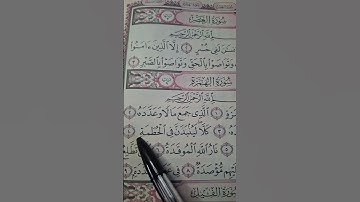 سُورَةُ العَصْرِ
بِسْمِ اللَّهِ الرَّحْمَٰنِ الرَّحِيمِ
لَفِي خُسْرٍ ٢ إِلَّا الَّذِينَ ءَامَنُوا
وَتَوَاصَوْا بِالْحَقِّ وَتَوَاصَوْا بِالصَّبْرِ ٣
سُورَةُ الهُمَزَةِ
بِسْمِ اللَّهِ الرَّحْمَٰنِ الرَّحِيمِ
١ الَّذِي جَمَعَ مَالًا وَعَدَّدَهُ ٢
كَلَّا لَيُنبَذَنَّ فِي الْحُطَمَةِ ٤
٥ نَارُ اللَّهِ الْمُوقَدَةُ ٦
مُّؤْصَدَةٌ ٨ فِي
سُورَةُ الفِيلِ